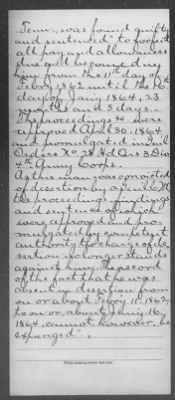 Tenn., was found guilty
and sentenced "to forfeit
all pay and allowances
due and become due
him from the 11th day of
Febry 1862 until the 16"
day of Jany 1864, 23
months and 5 days.
The proceedings &c were
approved April 30, 1864
and promulgated in Genl
Orders No 28 Hd Qrs 3 Div
4th Army Corps.
As this man was convicted
of desertion by a Genl C.M.
the proceedings, findings
and sentence of which
were approved and pro-
mulgated by competent
authority the charge of de-
sertion no longer stands
against him. The record
of the fact that he was
absent in desertion from
on or about Febry 11, 1862,
to on or about Jany 16,
1864, cannot, however, be
expunged".